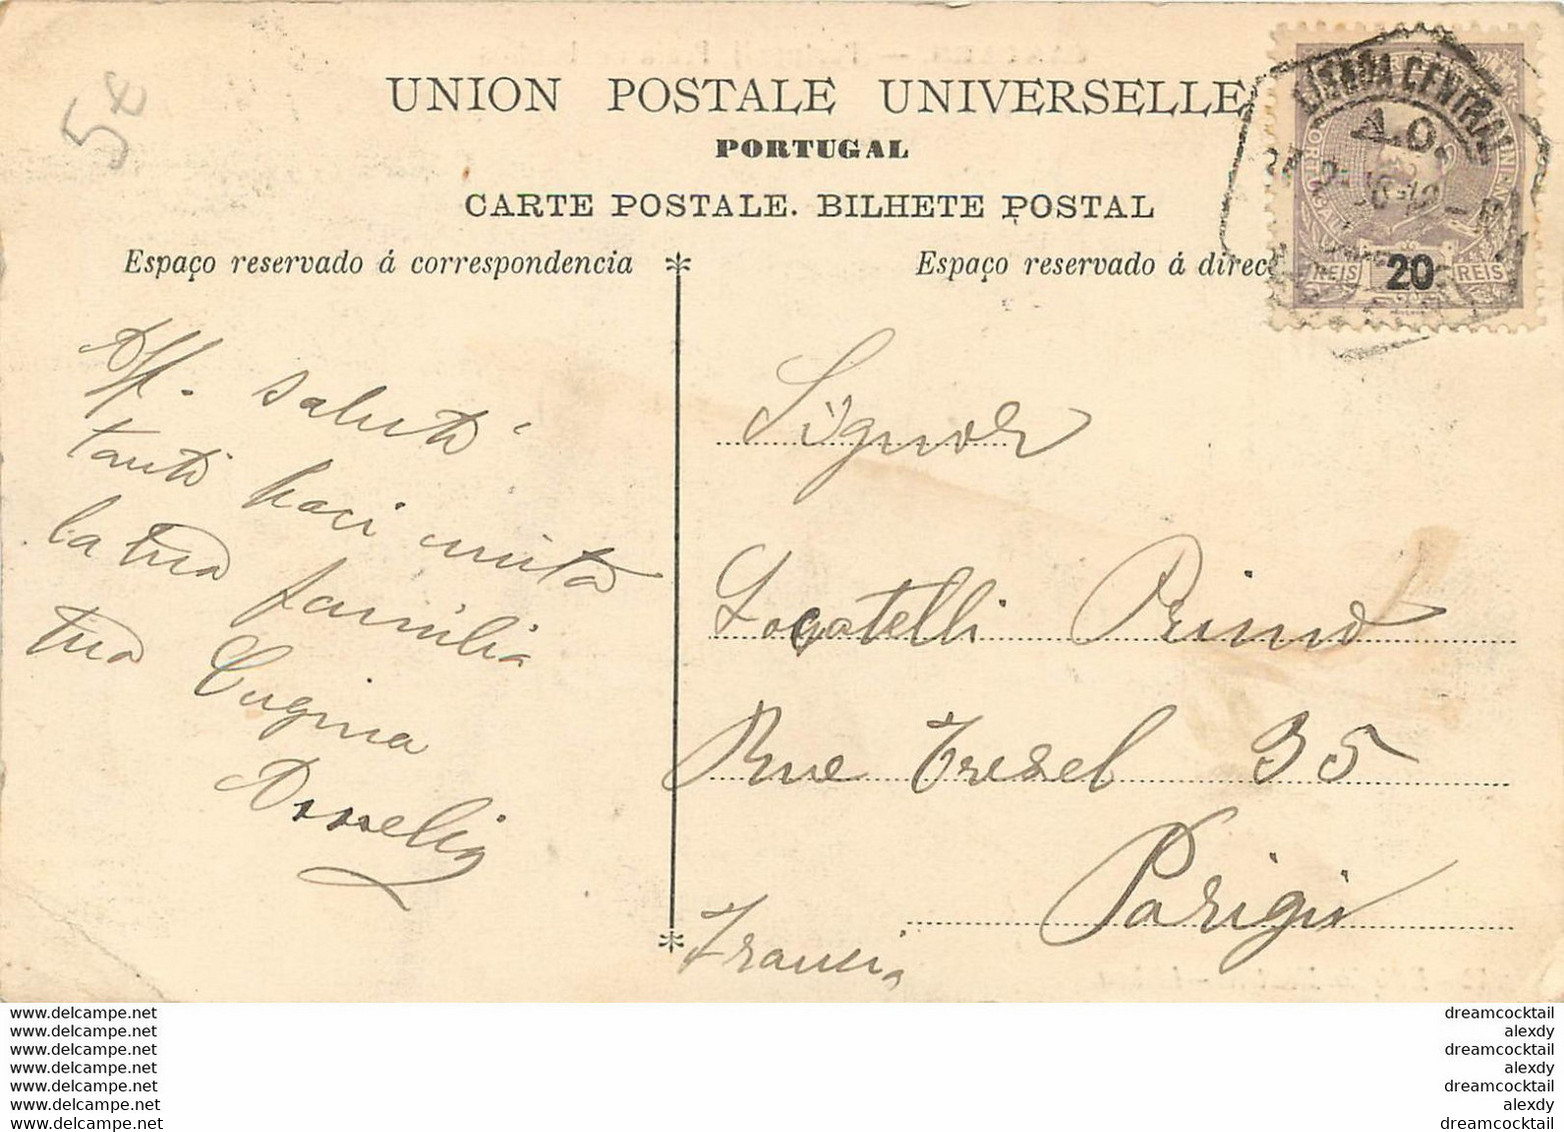 5€
UNION POSTALE UNIVERSELLE
PORTUGAL
CARTE POSTALE. BILHETE POSTAL
Espaço reservado á correspondencia
Espaço reservado á direc
LISBOA CENTRAL
A.O.
REIS 20 REIS
Aff. saluti
tanti baci unita
la tua familia
tua Cugina
Signor
Locatelli Primo
Rue Tresel 35
Parigi
Francia
www.delcampe.net
www.delcampe.net
www.delcampe.net
www.delcampe.net
www.delcampe.net
www.delcampe.net
www.delcampe.net
dreamcocktail
alexdy
dreamcocktail
alexdy
dreamcocktail
alexdy
dreamcocktail